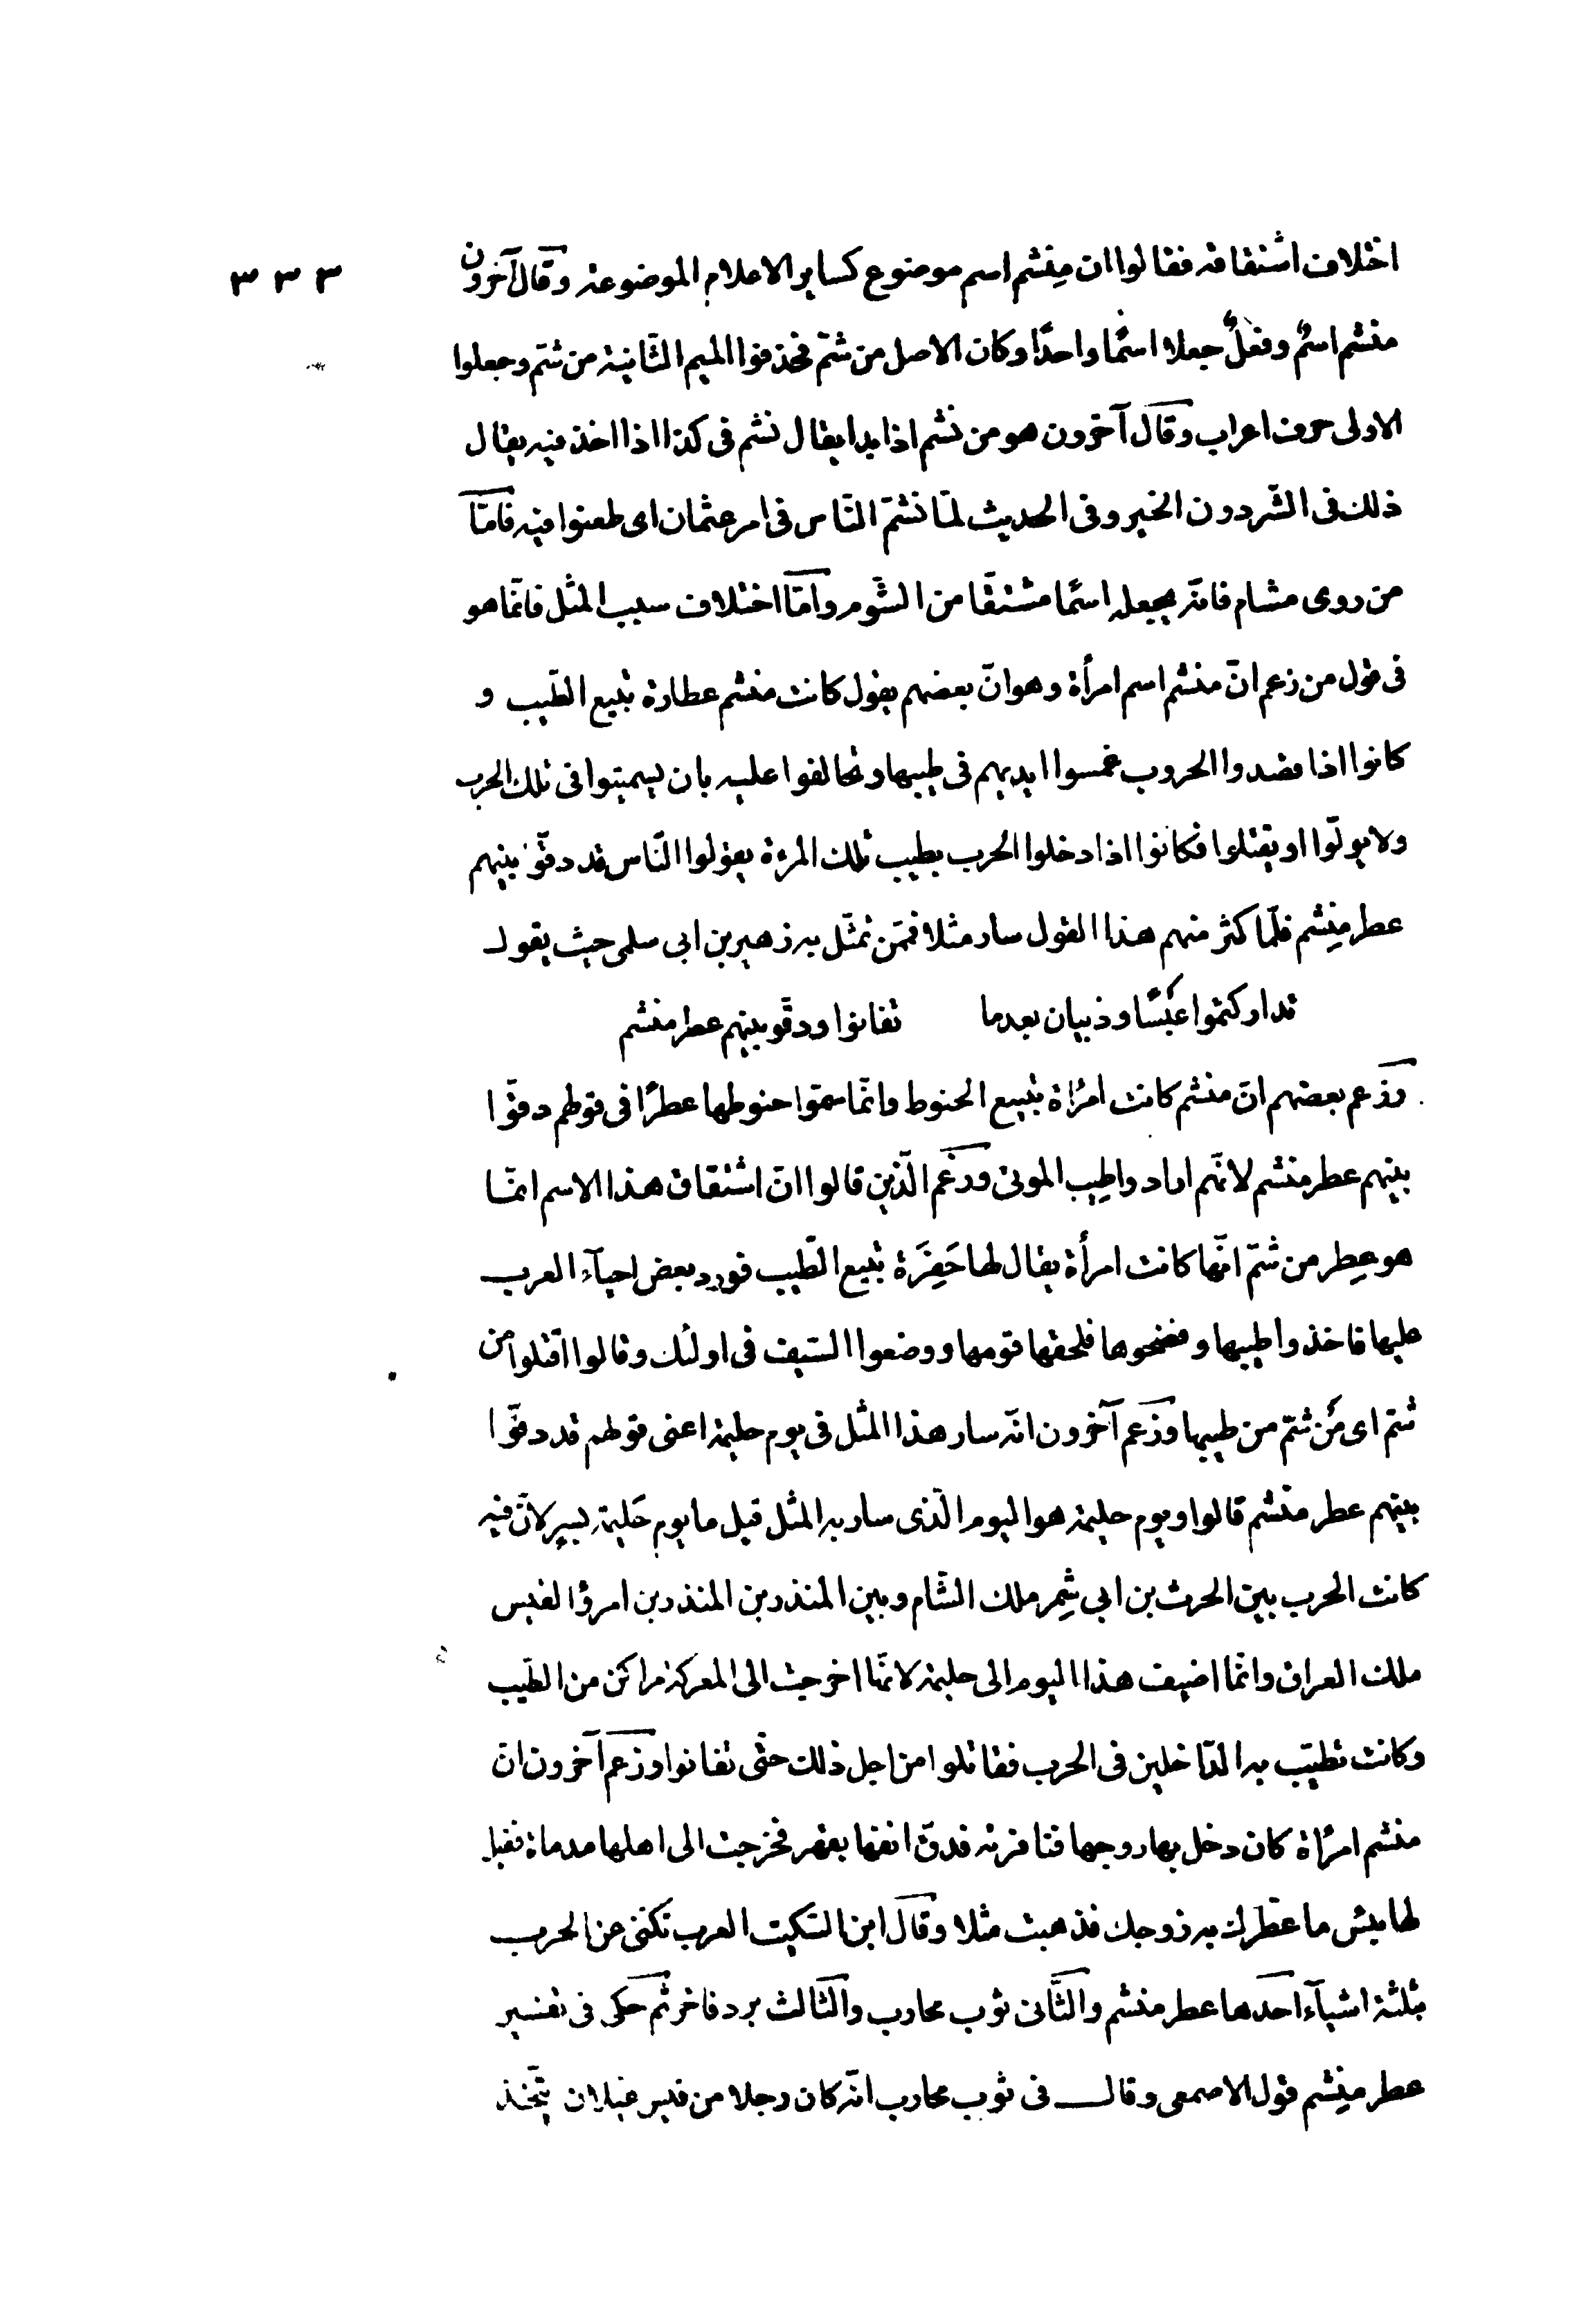 ٣٣٣
اختلاف اشتقاقه فقالوا ان مِنشم اسم موضوع كساير الاعلام الموضوعة وقال آخرون
منشم اسمٌ وفعلٌ جعلا اسمًا واحدًا وكان الاصل من شمّ فحذفوا الميم الثانية من شمّ وجعلوا
الاولى حرف اعراب وقال آخرون هو من نشم اذا بدا يقال نشم فى كذا اذا اخذ فيه يقال
ذلك فى الشّر دون الخير وفى الحديث لمّا نشّم النّاس فى امر عثمان اى طعنوا فيه فامّا
من روى مشام فانّه يجعله اسمًا مشتقًّا من الشّوم وامّا اختلاف سبب المثل فانّما هو
فى قول من زعم انّ منشم اسم امرأة وهو انّ بعضهم يقول كانت منشم عطارة تبيع الطّيب و
كانوا اذا قصدوا الحروب غمسوا ايديهم فى طيبها وتحالفوا عليه بان يسميتوا فى تلك الحرب
ولا يولّوا او يقتلوا فكانوا اذا دخلوا الحرب بطيب تلك المرءة يقولوا النّاس قد دقّو بينهم
عطر مِنشم فلمّا كثر منهم هذا القول سار مثلا فممّن تمثّل به زهير بن ابى سلمى حيث يقول
تداركتموا عبسًا وذبيان بعدما تفانوا ودقّو بينهم عطر منشم
وزعم بعضهم انّ منشم كانت امرأة تبيع الحنوط وانّما سمّوا حنوطها عطرًا فى قولهم دقّوا
بينهم عطر منشم لانّهم ارادوا طيب الموتى وزعم الّذين قالوا انّ اشتقاق هذا الاسم انمّا
هو عِطر من شمّ انّها كانت امرأة يقال لها خَفِرَة تبيع الطّيب فورد بعض احيآء العرب
عليها فاخذوا طيبها وفضحوها فلحقها قومها ووضعوا السّيف فى اولئك وقالوا اقتلوا من
شمّ اى مَن شمّ من طيبها وزعم آخرون انّه سار هذا المثل فى يوم حليمة اعنى قولهم قد دقّوا
بينهم عطر منشم قالوا ويوم حليمة هو اليوم الّذى سار به المثل فيل ما يوم حَليمة بسِرّ لانّ فيه
كانت الحرب بين الحرث بن ابى شِمر ملك الشّام وبين المنذر بن المنذر بن امرؤ القيس
ملك العراق وانّما اضيف هذا اليوم الى حليمة لانّها اخرجت الى المعركة مراكن من الطّيب
وكانت تطيّب به الدّاخلين فى الحرب فقاتلوا من اجل ذلك حتّى تفانوا وزعم آخرون انّ
منشم امرأة كان دخل بها روجها فنافرته فدقّ انفها بفهر فخرجت الى اهلها مدماة فقيل
لها بئس ما عطّرك به زوجك فذهبت مثلا وقال ابن السّكيت العرب تكنى عن الحرب
بثلثة اشيآء احدها عطر منشم والثّانى ثوب محارب والثّالث برد فاخر ثم حكى فى تفسير
عطر مِنشم قول الاصمعى وقال فى ثوب محارب انّه كان رجلا من قيس غيلان يتّخذ